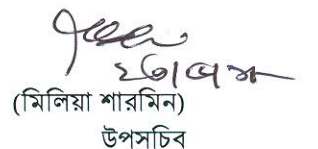 (মিলিয়া শারমিন)
উপসচিব